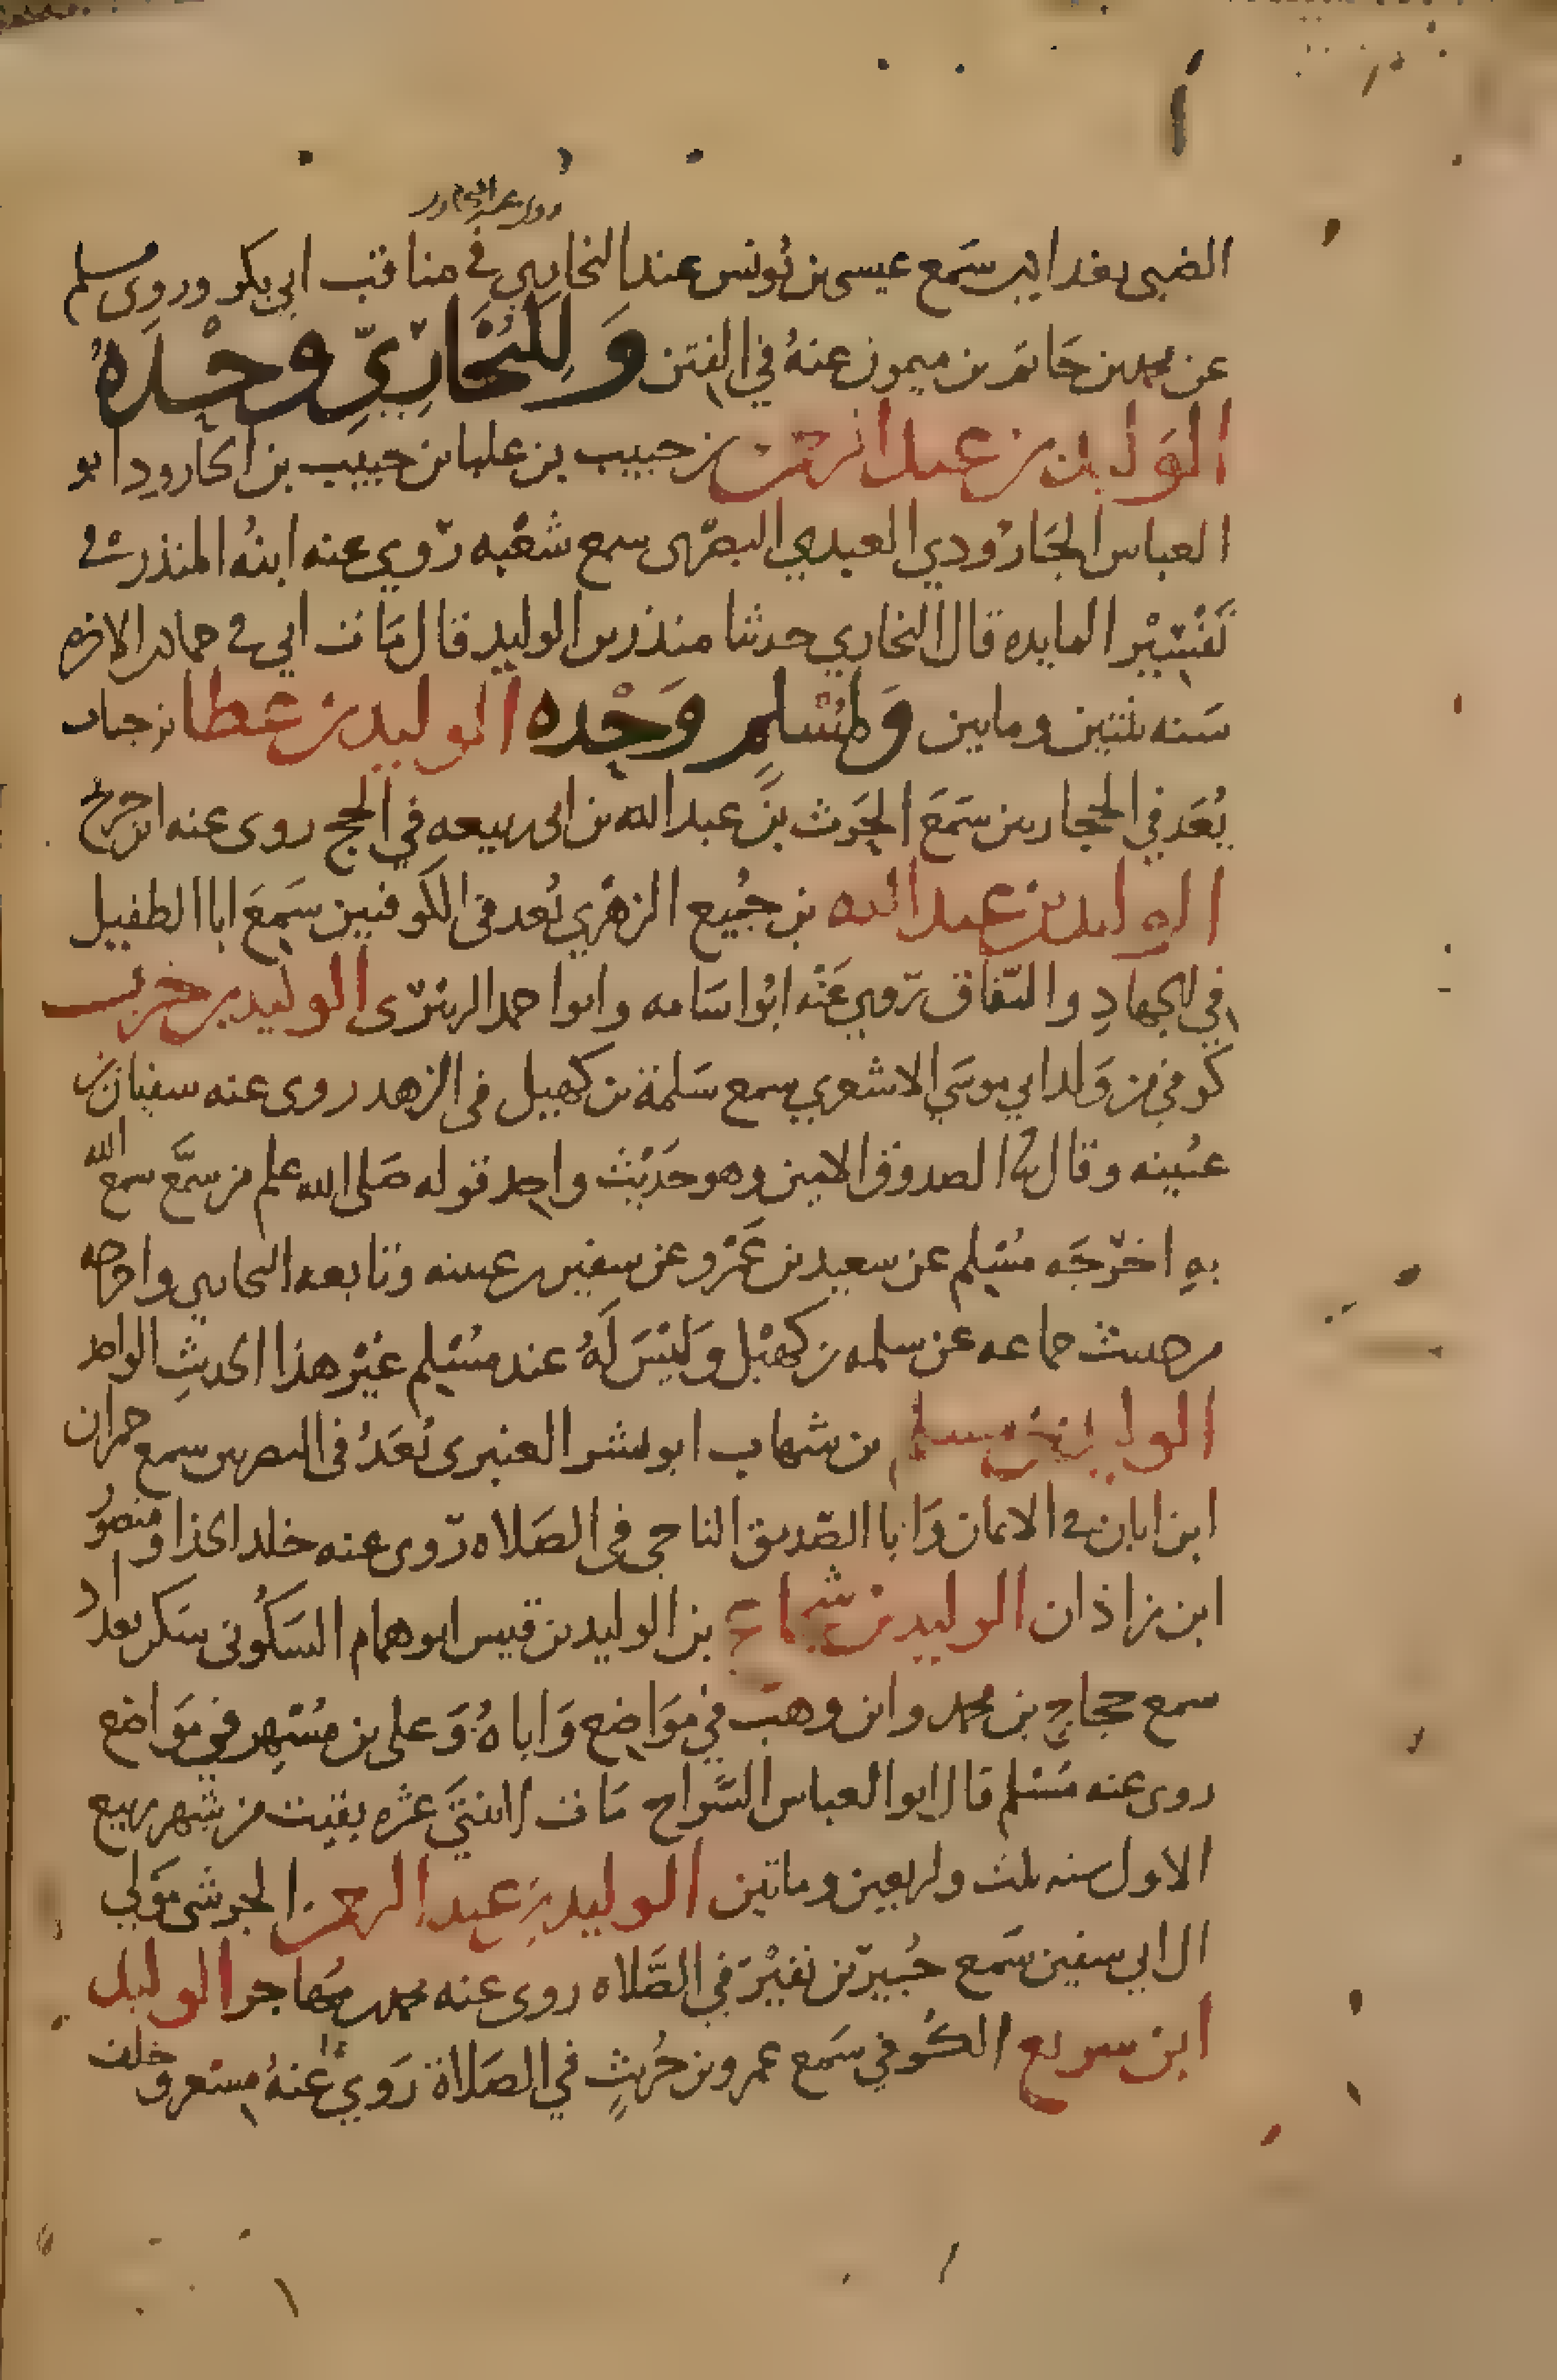 الضبى بغداد سَمع عيسى بن يُونس عند البخاري في مناقب ابي بكر وروى مسلم
عن محمد بن حَاتم بن ميمون عنهُ في الفتن وَلِلبُخَارِيِّ وحْدَهُ
الوَليد بن عبد الرحمن بن حبيب بن علبا بن حبيب بن الجارود ابو
العباس الجَارُودي العبدي البصرى سمع شعْبه رَوي عنه ابنهُ المنذر في
تَفْسِيْر المايده قال البخاري حدثنا منذر بن الوليد قال مَات ابي في جمادى الاخره
سَنه ثنتين ومايتين وَلمُسْلِمٍ وَحْدهُ الوليد بن عطا بن جناب
يُعَد في الحجازيين سَمَعَ الحَرث بن عبد الله بن ابى ربيعه في الحج روى عنه ابن جريج
الوليد بن عبد الله بن جُميع الزهْري يُعد فى الكوفيين سَمِعَ ابا الطفيل
في الجهادِ والنّفاق رَوي عَنْه ابُوا سَامه وابوا حمد الزبيرى الوليد بن حرب
كوفي من وَلد ابي موسَي الاشعري سمع سَلمة بن كهيل فى الزهد روى عنه سفيان بن
عيُينه وقال ثنا الصدوق الامين وهو حَديْث واحد قوله صَلى الله علم من سَمَّع سمع الله
بهِ اخرّجَه مسْلم عن سعيد بن عَمْرو عن سفين بن عيينه وتابعه البخاري واخرجه
من حديث جماعه عن سلمه بن كهيْل وَليْسَ لَهُ عند مسْلم غيْر هذا الحديثِ الواحد
الوليد بن مسلم بن شهاب ابو بشر العنبرى يُعَدُ فى البصريين سمع حمران
ابن ابان في الايمان وَابا الصّديق الناجى فى الصَلاه رَوى عنه خلد الحذا ومنصُور
ابن زاذان الوليد بن شجاع بن الوليد بن قيس ابو همام السَكُونى سَكن بغداد
سمع حجاج بن محمد وابن وهب في موَاضع وَاباهُ وَعلى بن مسْهِر في موَاضع
روى عنه مسْلم قال ابو العباس السَّراج مَات لاثنتَي عشره بقيت من شهر ربيع
الاول سنه ثلث واربعين وماتين الوليد بن عبد الرحمن الجرشى مَولي
ال ابي سفين سَمع جُبير بن نفيْر في الصَّلاه روى عنه محمد بن مُهاجر الوليد
ابن سريع الكُوفي سَمع عمرو بن حُريثٍ في الصَلاة رَوي عنهُ مسْعر وخلف